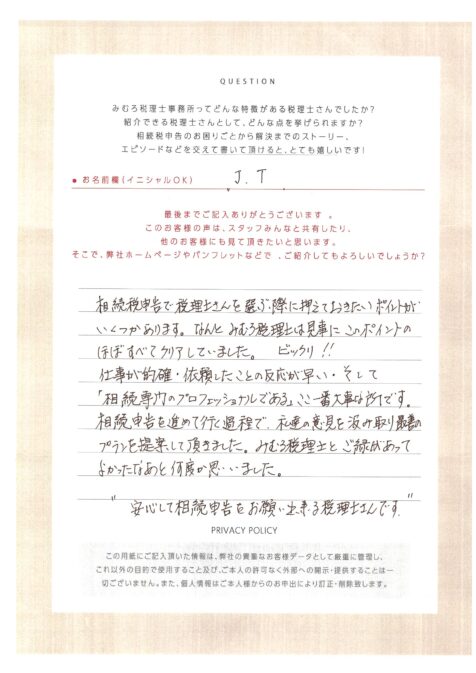 QUESTION
みむろ税理士事務所ってどんな特徴がある税理士さんでしたか?
紹介できる税理士さんとして、どんな点を挙げられますか?
相続税申告のお困りごとから解決までのストーリー、
エピソードなどを交えて書いて頂けると、とても嬉しいです!
● お名前欄(イニシャルOK) J.T
最後までご記入ありがとうございます 。
このお客様の声は、スタッフみんなと共有したり、
他のお客様にも見て頂きたいと思います。
そこで、弊社ホームページやパンフレットなどで 、ご紹介してもよろしいでしょうか?
相続税申告で税理士さんを選ぶ際に押えておきたいポイントが
いくつかあります。なんと みむろ税理士は見事に このポイントの
ほぼすべてクリアしていました。 ビックリ!!
仕事が的確・依頼したことの反応が早い・そして
「相続専門のプロフェッショナルである。」ここ一番大事な所です。
相続申告を進めて行く過程で、私達の意見を汲み取り最善の
プランを提案して頂きました。みむろ税理士とご縁があって
よかったなあと何度か思いました。
"安心して相続申告をお願い出来る税理士さんです"
PRIVACY POLICY
この用紙にご記入頂いた情報は、弊社の貴重なお客様データとして厳重に管理し、
これ以外の目的で使用すること及び、ご本人の許可なく外部への開示・提供することは一
切ございません。また、個人情報はご本人様からのお申出により訂正・削除致します。